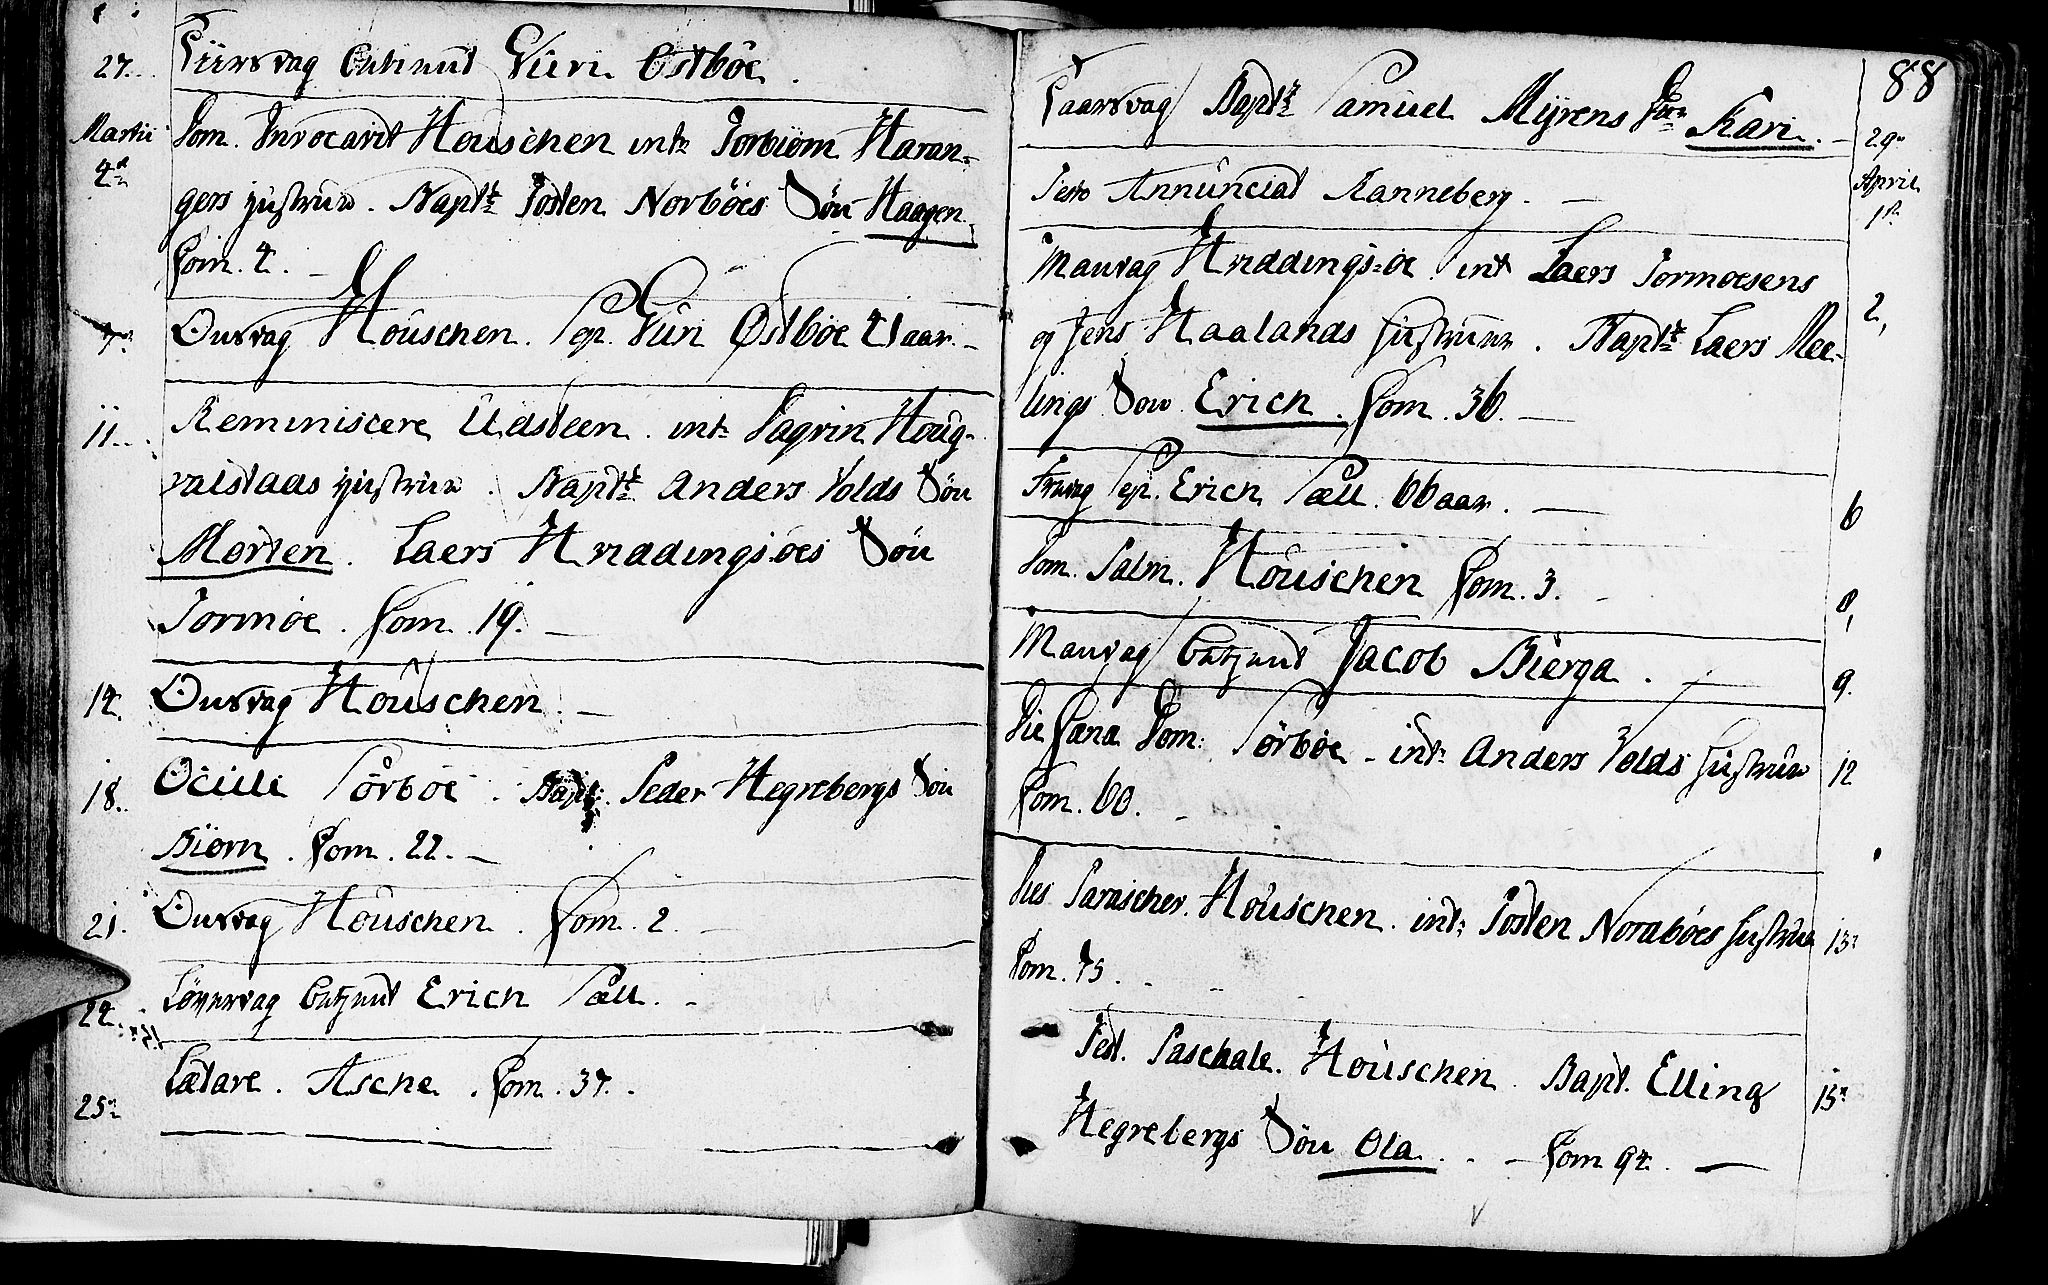 27. Tiirsdag betient Guri Østbøe.
Martii Dom. Invocavit Houschen int: Torbiörn Haran-
4de gers hustrue. Bapt: Josten Norböes Sön Haagen
Com. 4.
7. Onsdag Houschen. Sep. Guri Østböe aar.
11. Reminiscere Udsteen. int: Sagrin Houg-
valstads hustrue. Bapt: Anders Volds Sön
Morten. Laers Hviddingsöes Sön
Tormöe. Com. 19.
14. Onsdag Houschen.
18. Oculi Sörböe. Bapt: Peder Hegrebergs Sön
Biörn. Com. 22.
21. Onsdag Houschen. Com. 2.
24. Löverdag betjent Erich Sæll.
25. Lætare. Asche. Com. 37.
88
Taarsdag Bapt: Samuel Myrens Kari. 29
Festo Annunciat Ranneberg. April 1.
Mandag Hviddings-öe int Laers Tormoesens 2,
og Jens Haalands hustruer. Bapt: Laers Mee-
lings Sön Erich. Com. 36.
Fredag Sep. Erich Sæll. 66 aar. 6
Dom. Palm. Houschen Com. 3. 8,
Mandag betjent Jacob Bierga. 9.
Die Cæna Dom: Sörböe. int: Anders Volds hustrue 12
Com. 60.
Dies Parascher. Houschen. int: Josten Nordböes hustrue 13
Com. 75.
Fest. Paschale. Houschen. Bapt. Elling 15
Hegrebergs Sön Ola. Com 94.